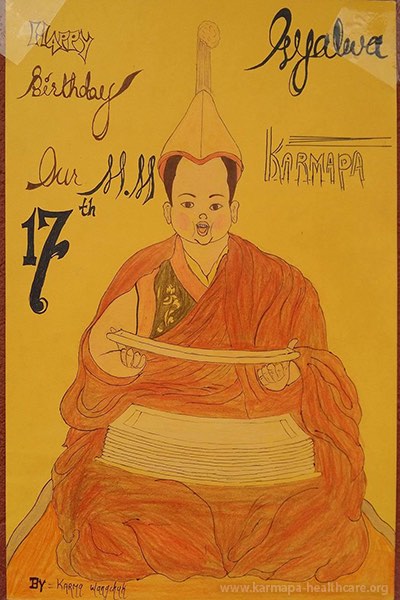 Happy
Birthday
Our H.H
17th
Gyalwa
KARMAPA
BY = KARMA Wangchuk
www.karmapa-healthcare.org